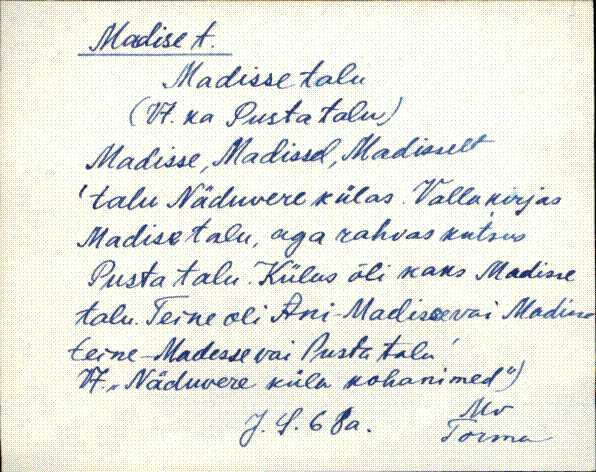 Madise t.
Madisse talu
(Vt. ka Pusta talu)
Madisse, Madissel, Madisselt
'talu Näduvere külas. Vallakirjas
Madise talu, aga rahvas kutsus
Pusta talu. Külas õli kaks Madisse
talu. Teine oli Ani-Madisse vai Madisse
teine-Madesse vai Pusta talu'
Vt. „Näduvere küla kohanimed")
J. S. 68a.
Mv
Torma